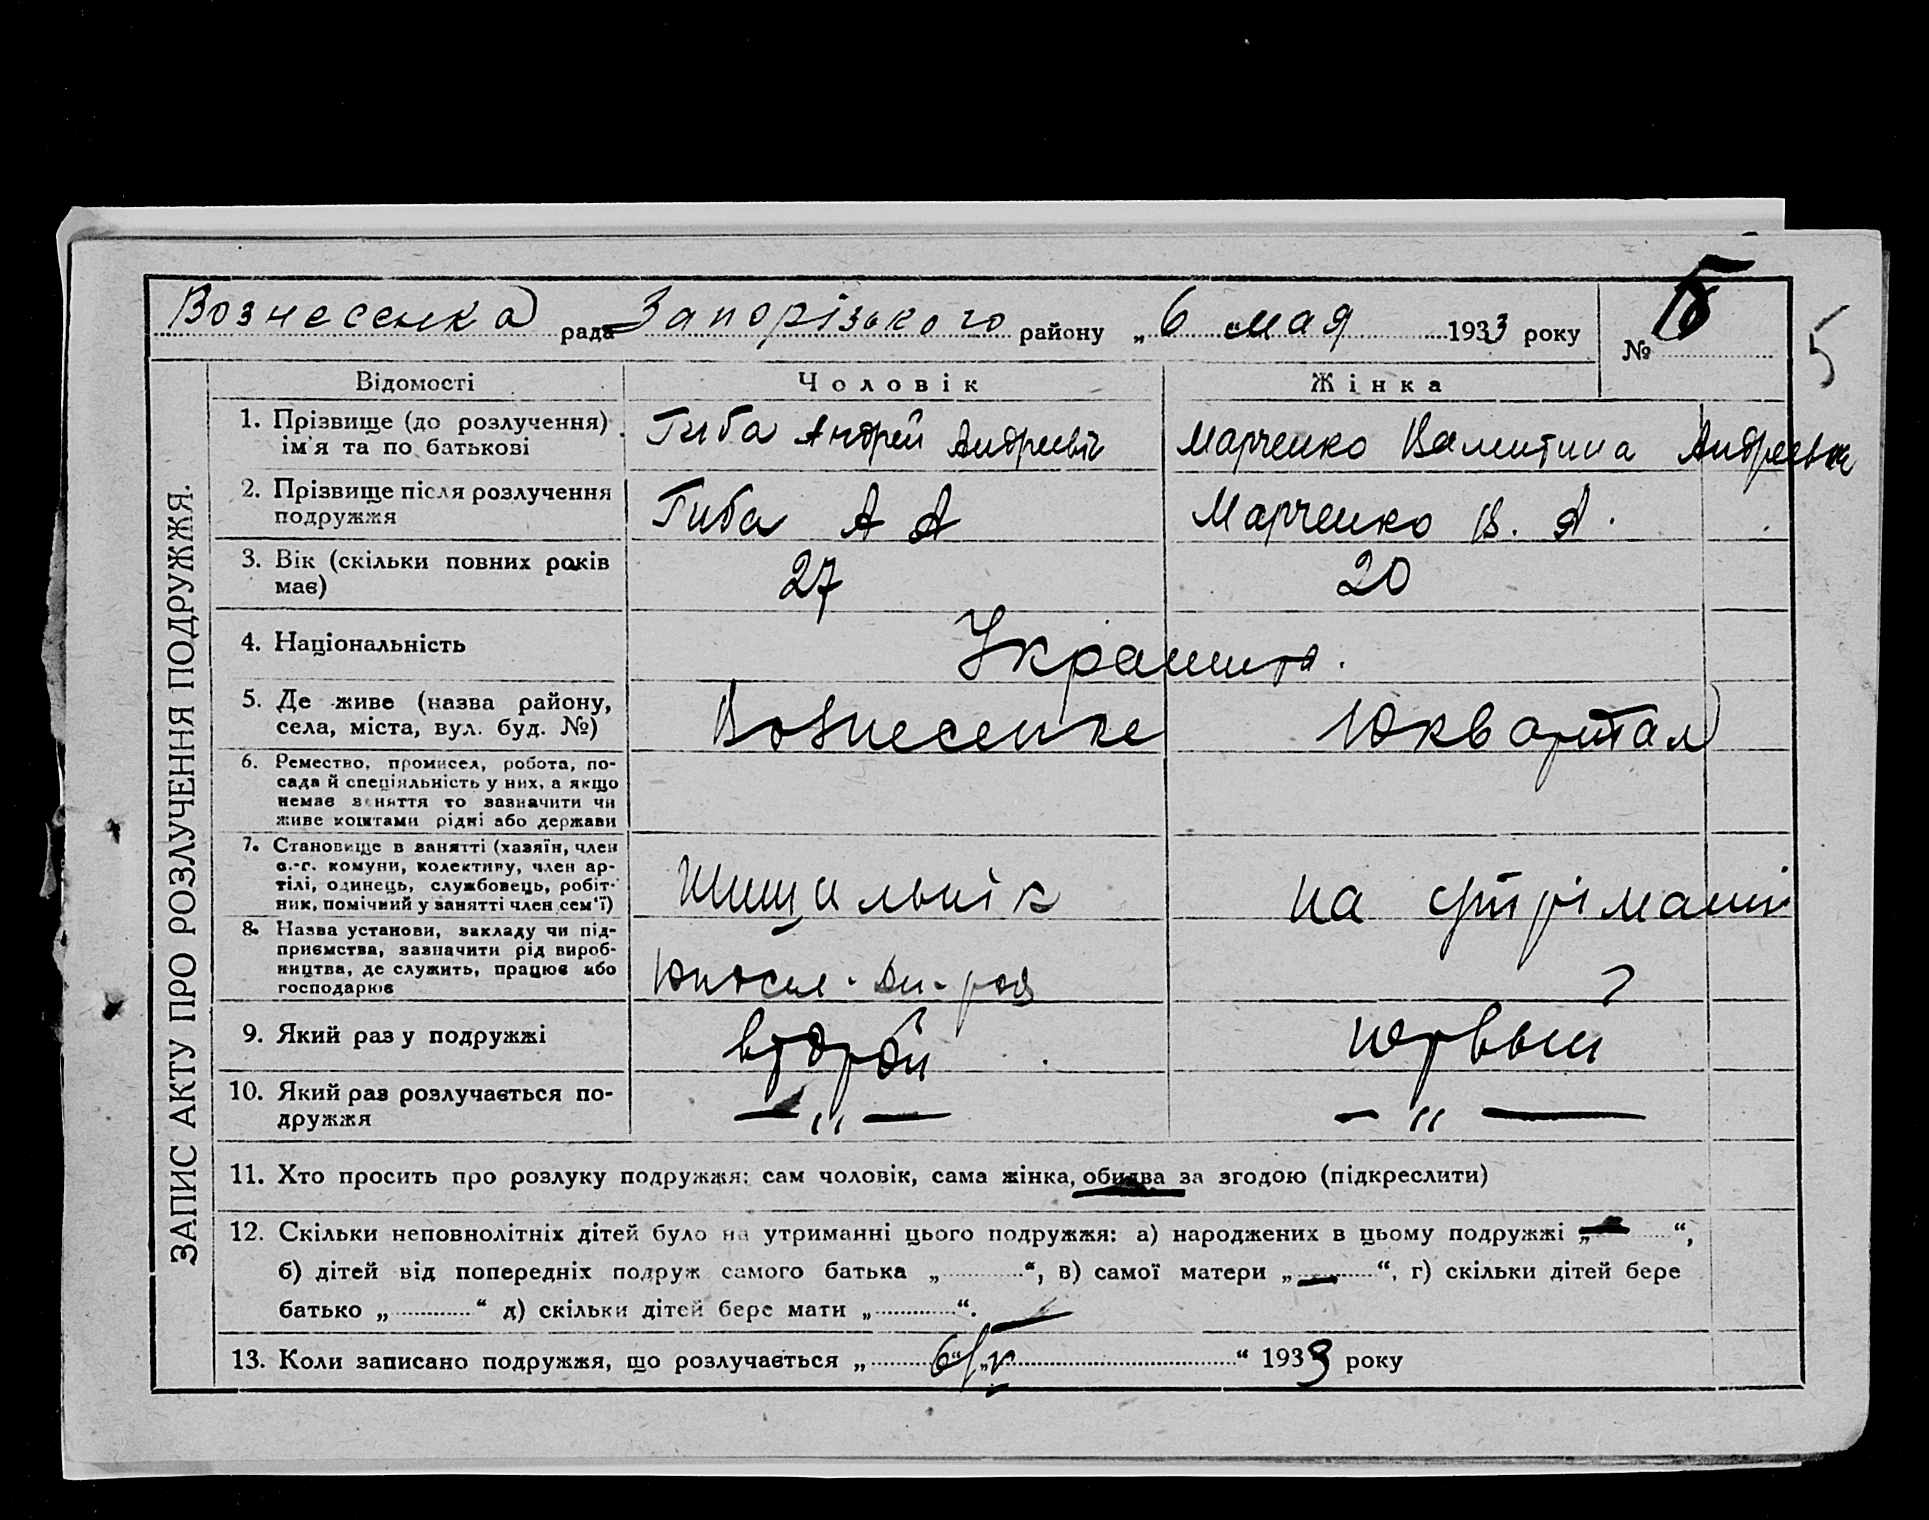 Вознесенка рада Запорізького району „ 6 мая 1933 року
№ 5
5
ЗАПИС АКТУ ПРО РОЗЛУЧЕННЯ ПОДРУЖЖЯ.
Відомості Чоловік Жінка
1. Прізвище (до розлучення)
ім'я та по батькові
Гиба Андрей Андреевіч Марченко Валентина Андреевна
2. Прізвище після розлучення
подружжя
Гиба А А Марченко В. А.
3. Вік (скільки повних років
має)
27 20
4. Національність
5. Де живе (назва району,
села, міста, вул. буд. №)
Вознесенке квартал
6. Ремество, промисел, робота, по-
сада й спеціяльність у них, а якщо
немає заняття то зазначити чи
живе коштами рідні або держави
7. Становище в занятті (хазяїн, член
с.-г. комуни, колективу, член ар-
тілі, одинець, службовець, робіт-
ник, помічний у занятті член сем'ї)
на
8. Назва установи, закладу чи під-
приємства, зазначити рід вироб-
ництва, де служить, працює або
господарює
9. Який раз у подружжі
второй первый
10. Який раз розлучається по-
дружжя
— „ — — „ —
11. Хто просить про розлуку подружжя: сам чоловік, сама жінка, обидва за згодою (підкреслити)
12. Скільки неповнолітніх дітей було на утриманні цього подружжя: а) народжених в цьому подружжі „ — “,
б) дітей від попередніх подруж самого батька „ “, в) самої матери „ — “, г) скільки дітей бере
батько „ “ д) скільки дітей бере мати „ “. —
13. Коли записано подружжя, що розлучається „ 6/V “ 1933 року